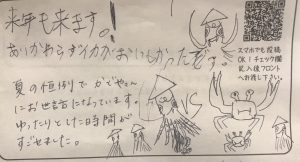 来年も来ます。!
あいかわらずイカがおいしかったです。
夏の恒例でかでやさんに
お世話になっています。
ゆったりとした時間が
すごせました。
VS
スマホでも投稿
OK!チェック欄
記入後フロント
へお渡し下さい。